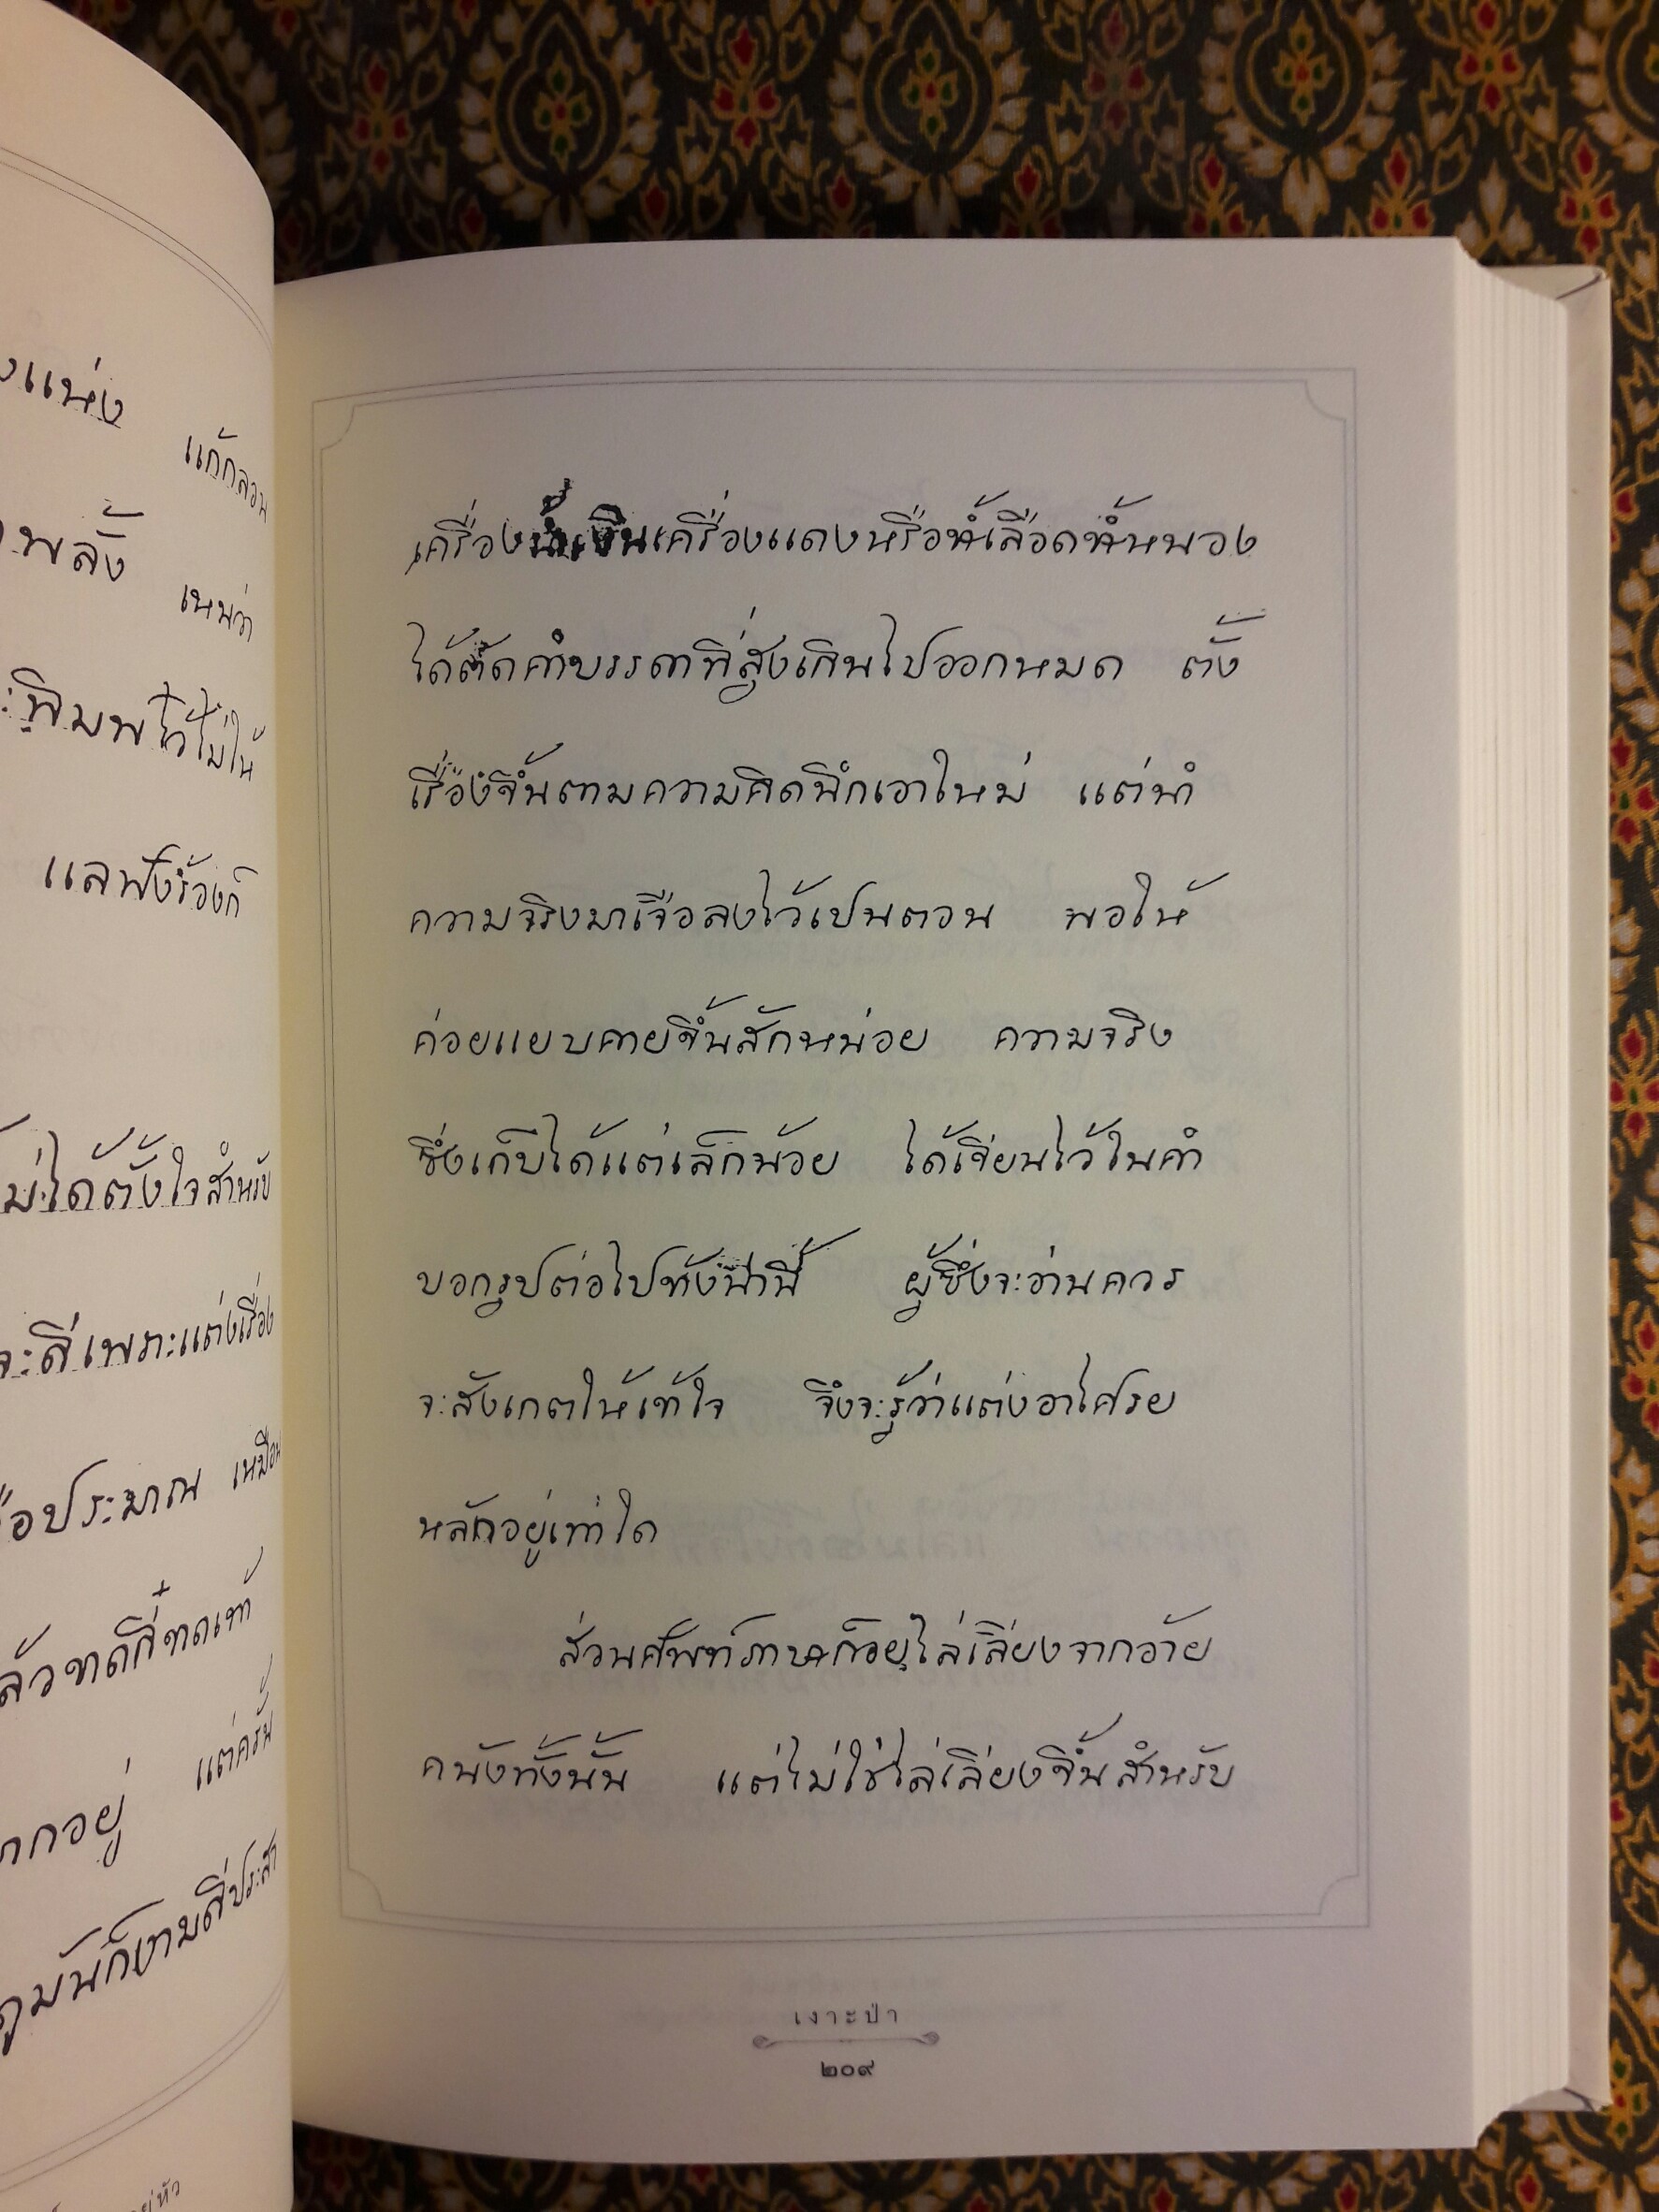 งแห่ง
แก้กลอน
พลั้ง
เหนว่า
พิมพไว้ไม่ให้
แลฟังร้องก็
ไม่ได้ตั้งใจสำหรับ
จะดีเพราะแต่งเรื่อง
ประมาณ เหมือน
อยู่ แต่ครั้น
มันก็งามดีประสา
เครื่องน้ำเงินเครื่องแดงหรือน้ำเลือดน้ำหนอง
ได้ตัดคำบรรดาที่สูงเกินไปออกหมด ตั้ง
เรื่องขึ้นตามความคิดนึกเอาใหม่ แต่นำ
ความจริงมาเจือลงไว้เปนตอน พอให้
ค่อยแยบคายขึ้นสักหน่อย ความจริง
ซึ่งเก็บได้แต่เล็กน้อย ได้เขียนไว้ในคำ
บอกรูปต่อไปข้างน่านี้ ผู้ซึ่งจะอ่านควร
จะสังเกตให้เข้าใจ จึงจะรู้ว่าแต่งอาไศรย
หลักอยู่เท่าใด
ส่วนศัพท์ภาษาก็อยู่ไล่เลียงจากอ้าย
คนังทั้งนั้น แต่ไม่ใช่ไล่เลียงขึ้นสำหรับ
เงาะป่า
๒๐๙